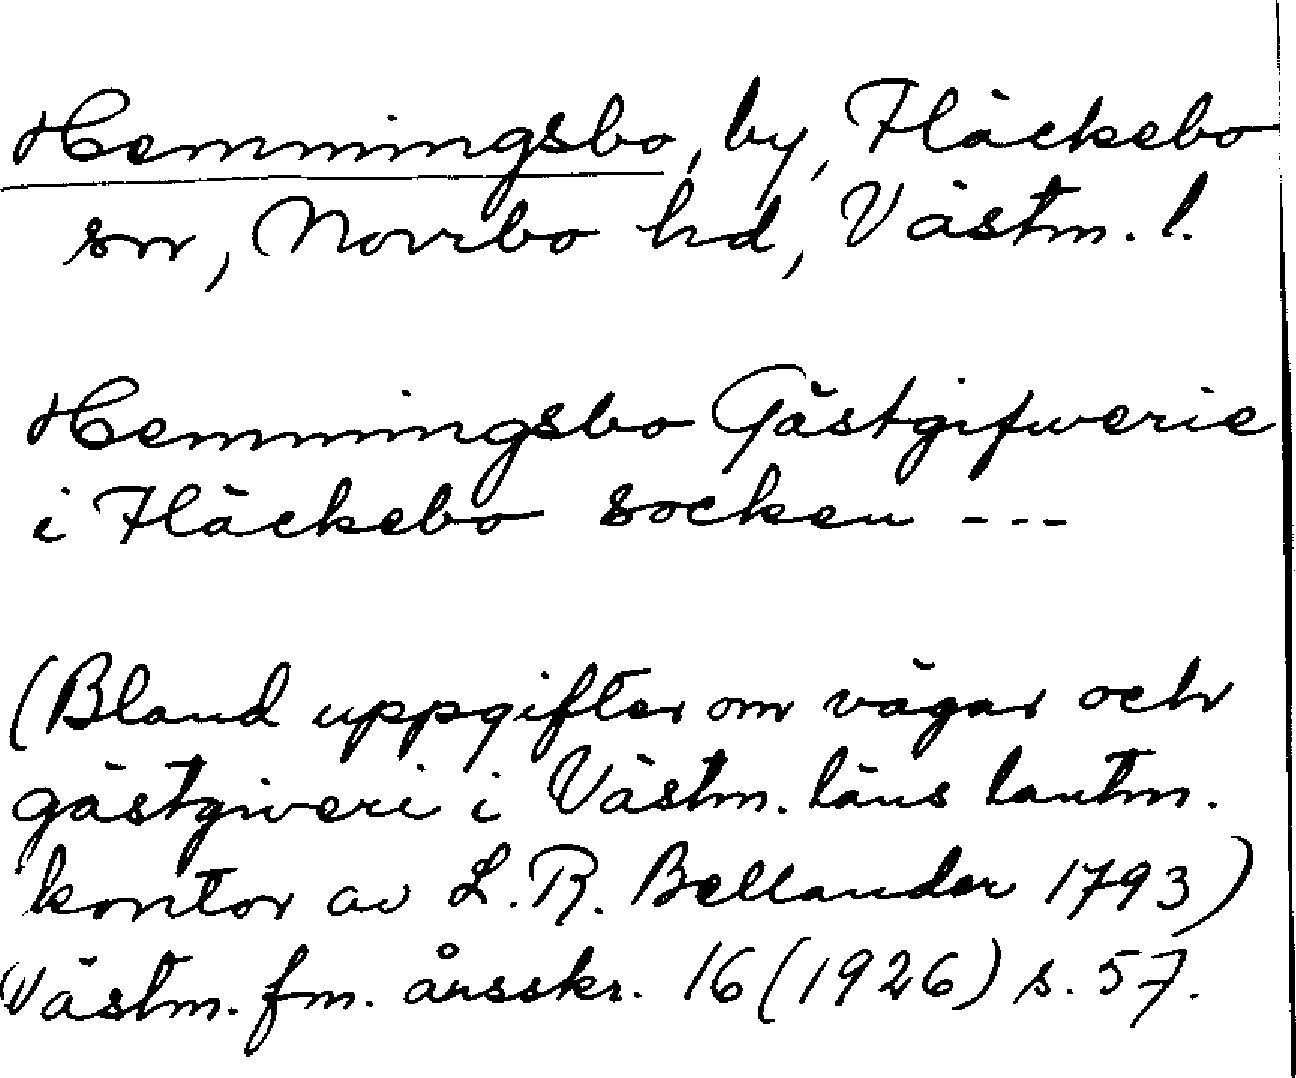 Hemmingsbo, by, Fläckebo
sn, Norrbo hd, Västm. l.
Hemmingsbo Gästgifwerie
i Fläckebo socken ---
(Bland uppgifter om vägar och
gästgiveri i Västm. läns lantm.
kontor av L. R. Bellander 1793)
Västm. fm. årsskr. 16 (1926) s. 57.